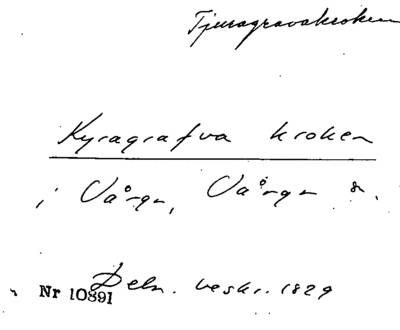 Tjuragravakroken
Kyragrafva kroken
i Vårgn, Vårgn s.
Deln. beskr. 1829
Nr 10891